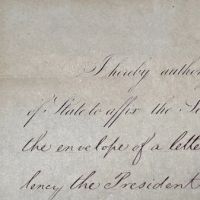 I hereby author
of State to affix the Se
the envelope of a lette
lency the President